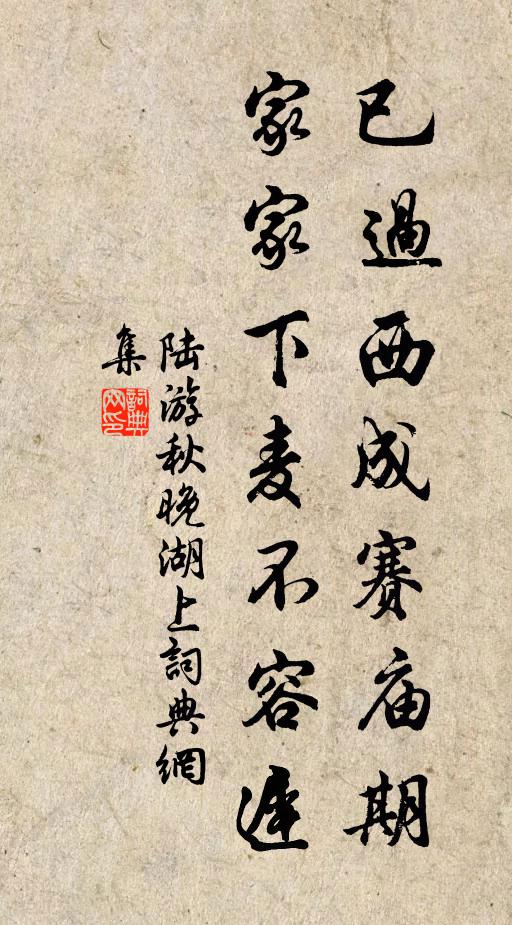 已過西成賽庙期
家家下麦不容遲
陆游秋晚湖上詞典網
集
詞典网印